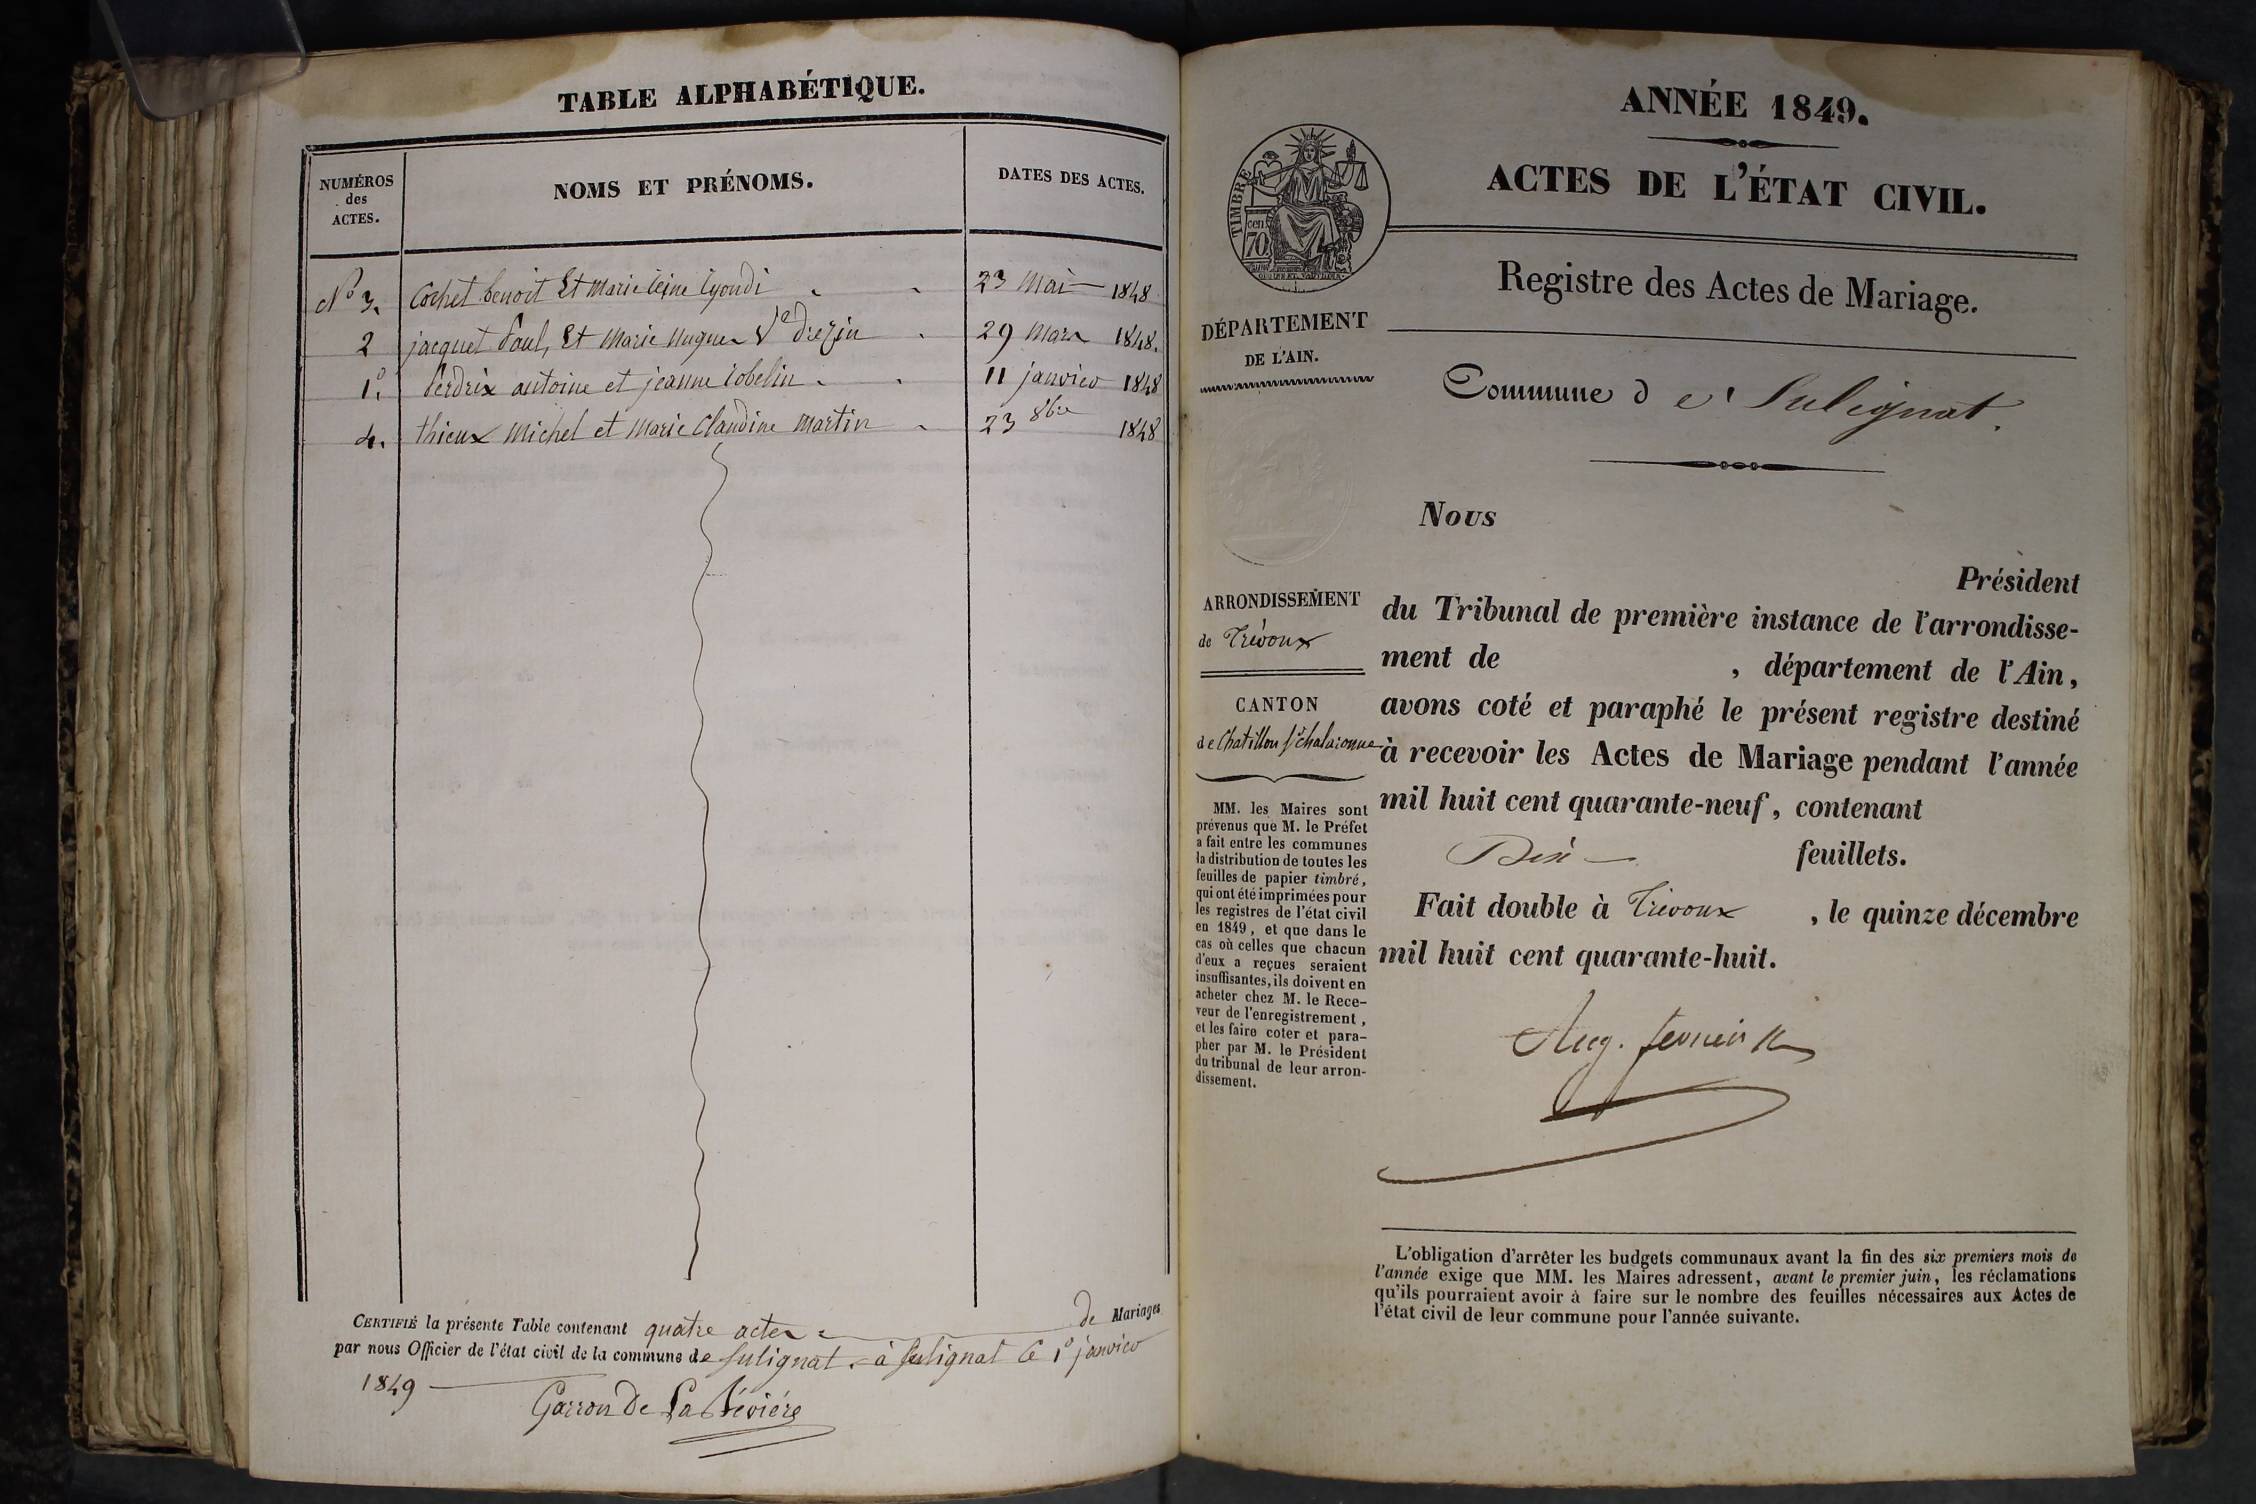 TABLE ALPHABÉTIQUE.
NUMÉROS
des
ACTES.
NOMS ET PRÉNOMS.
DATES DES ACTES.
N° 3. Cochet benoit Et Marie Lyondi 23 Mai 1848
2 jacquet Paul, Et Marie Ve 29 Mars 1848.
1° Perdrix antoine et jeanne Cobelin 11 janvier 1848
4. thieux Michel et Marie Claudine Martin 23 8bre 1848
CERTIFIÉ la présente Table contenant quatre actes de Mariages
par nous Officier de l'état civil de la commune de Sulignat. à Sulignat le 1° janvier
1849
Garron De La Bévière
ANNÉE 1849.
ACTES DE L'ÉTAT CIVIL.
TIMBRE
cen
70
Registre des Actes de Mariage.
DÉPARTEMENT
DE L'AIN.
Commune de Sulignat.
Nous
Président
du Tribunal de première instance de l'arrondisse-
ment de , département de l'Ain,
avons coté et paraphé le présent registre destiné
à recevoir les Actes de Mariage pendant l'année
mil huit cent quarante-neuf, contenant
Dix feuillets.
Fait double à Trévoux , le quinze décembre
mil huit cent quarante-huit.
Aug.
ARRONDISSEMENT
de Trévoux
CANTON
de Chatillon sr chalaronne
MM. les Maires sont
prévenus que M. le Préfet
a fait entre les communes
la distribution de toutes les
feuilles de papier timbré,
qui ont été imprimées pour
les registres de l'état civil
en 1849, et que dans le
cas où celles que chacun
d'eux a reçues seraient
insuffisantes, ils doivent en
acheter chez M. le Rece-
veur de l'enregistrement,
et les faire coter et para-
pher par M. le Président
du tribunal de leur arron-
dissement.
L'obligation d'arrêter les budgets communaux avant la fin des six premiers mois de
l'année exige que MM. les Maires adressent, avant le premier juin, les réclamations
qu'ils pourraient avoir à faire sur le nombre des feuilles nécessaires aux Actes de
l'état civil de leur commune pour l'année suivante.